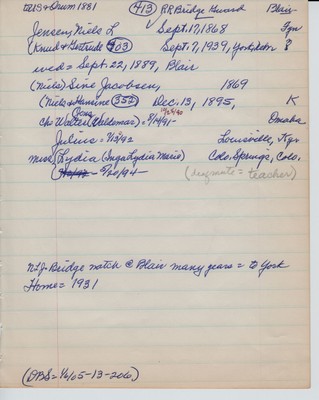 (413) RR Bridge Guard Blair
Jensen, Niels L Sept. 17, 1868 Fyn
(Knud & Gertrude (403) Sept. 7, 1939, York,
wed = Sept. 22, 1889, Blair
(Niels) Sine Jacobsen, 1869
(Niels & Hansine (352) Dec. 13, 1895, K
Jens 1924/40
ch. Walter (Valdemar) = 8/14/91 - Omaha
Julius = 7/2/92 Louisville, Ky
miss Lydia (Inga Lydia Marie) Colo. Springs, Colo.
9/20/94 - (teacher)
NLJ - Bridge watch @ Blair many years = to York
Home = 1931
(DBS = 46/05-13-206)